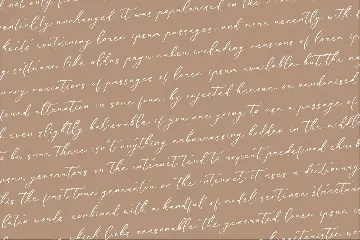 not only five
essentially unchanged it was popularised in the
sheets containing lorem ipsum passages and more recently with
software like aldus page maker including versions of lorem ipsum
many variations of passages of lorem ipsum available but the
suffered alteration in some form by injected humour or randomised
look even slightly believable if you are going to use a passage of
to be sure there isn't anything embarrassing hidden in the middle
ipsum generators on the internet tend to repeat predefined chunks
this the first true generator on the internet it uses a dictionary
latin words combined with a handful of model sentence structures
which looks reasonable the generated lorem ipsum
characteristic